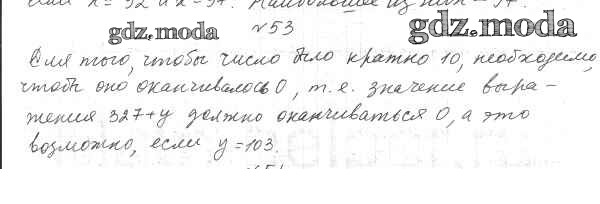 gdz.moda
№ 53
gdz.moda
Для того, чтобы число было кратно 10, необходимо,
чтобы оно оканчивалось 0, т.е. значение выра-
жения 327+y должно оканчиваться 0, а это
возможно, если y = 103.